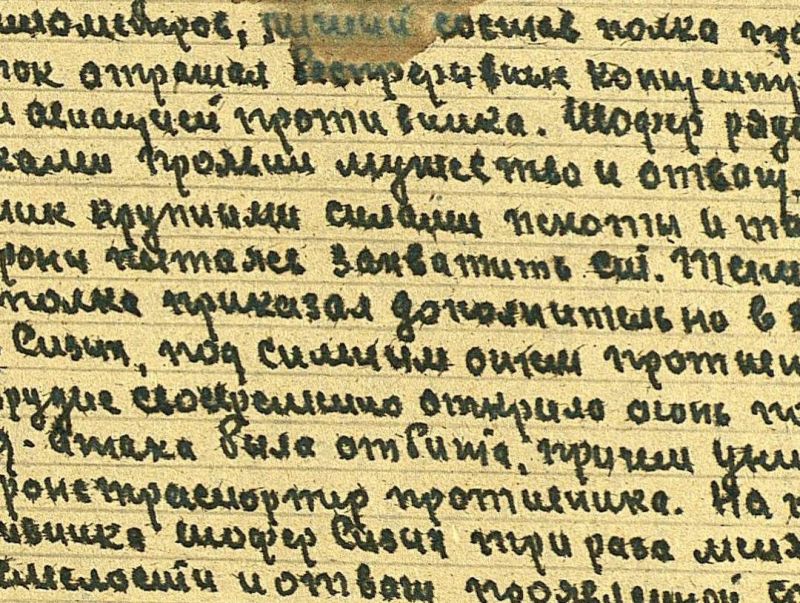 илометров, личный состав полка пр
ток отражал беспрерывные контр
и авиацией противника. Шофер ряд
ками проявил мужество и отваг
ник крупными силами пехоты и та
роны пытался захватить ст.
полка приказал дополнительно в
Сизых, под сильным огнем против
орудие своевременно открыло огонь по
Атака была отбита, причем уни
ронетраспортер противника. На
ивника шофер Сизых три раза меня
смелости и отваги проявленной